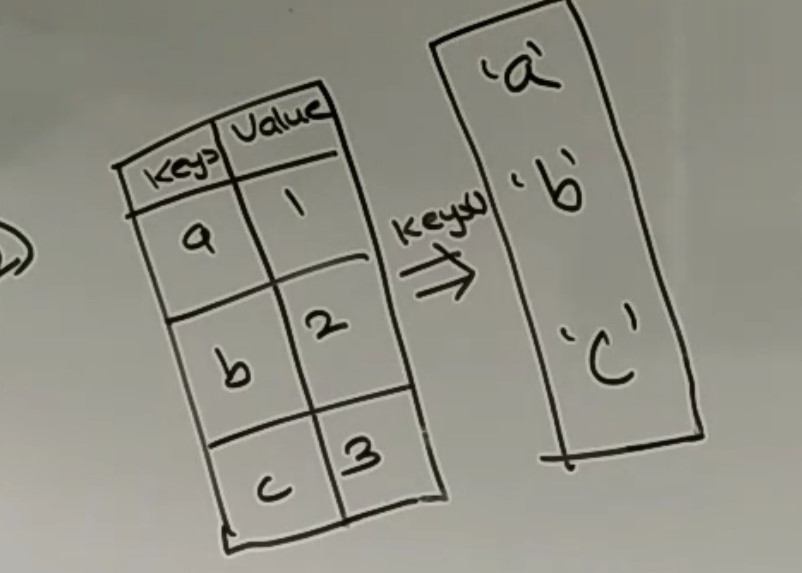 Keys Value
a 1
b 2
c 3
keys()
'a'
'b'
'c'